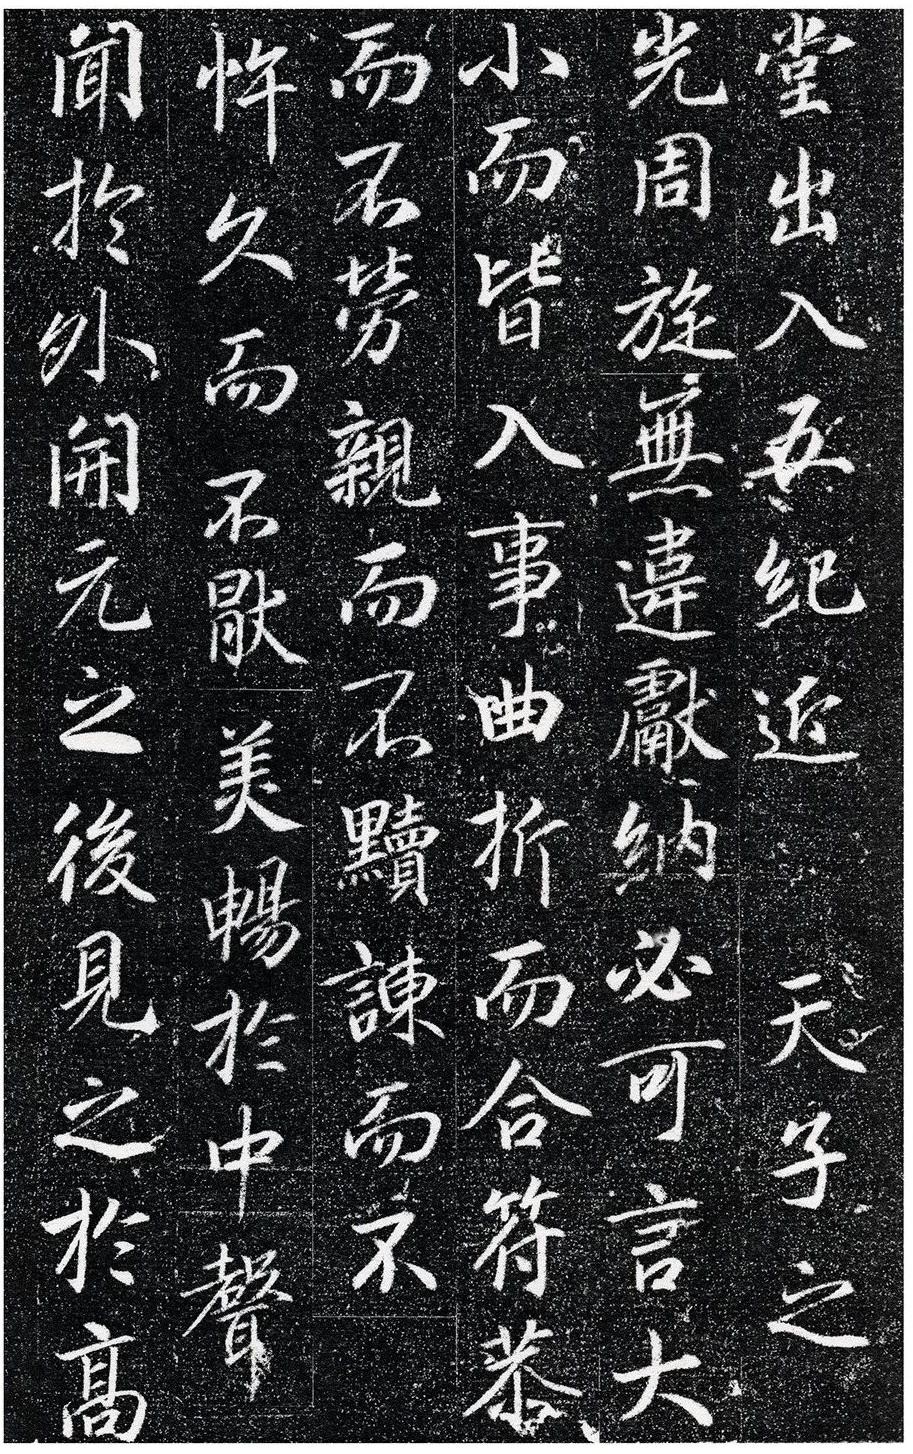 堂出入五紀近天子之
光周旋無違獻納必可言大
小而皆入事曲折而合符恭
而不勞親而不黷諫而不
忤久而不猒美暢於中聲
聞於外開元之後見之於高